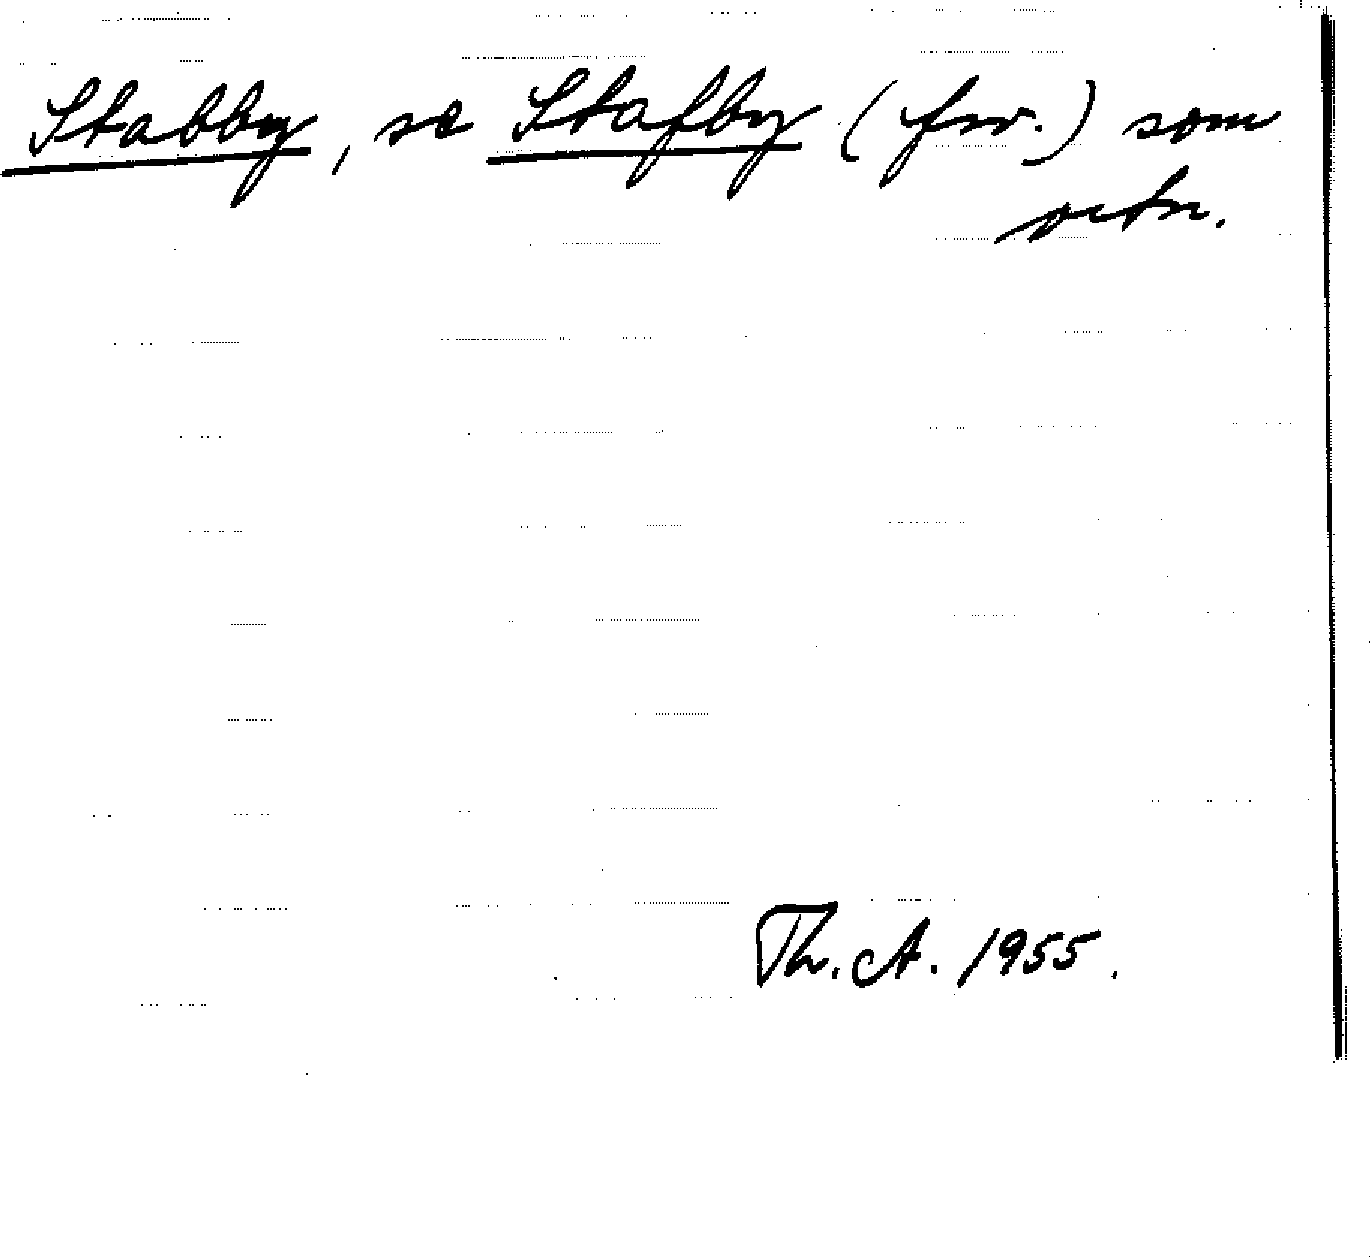 Stabby, se Stafby (fsv.) som
ortn.
Th. A. 1955.